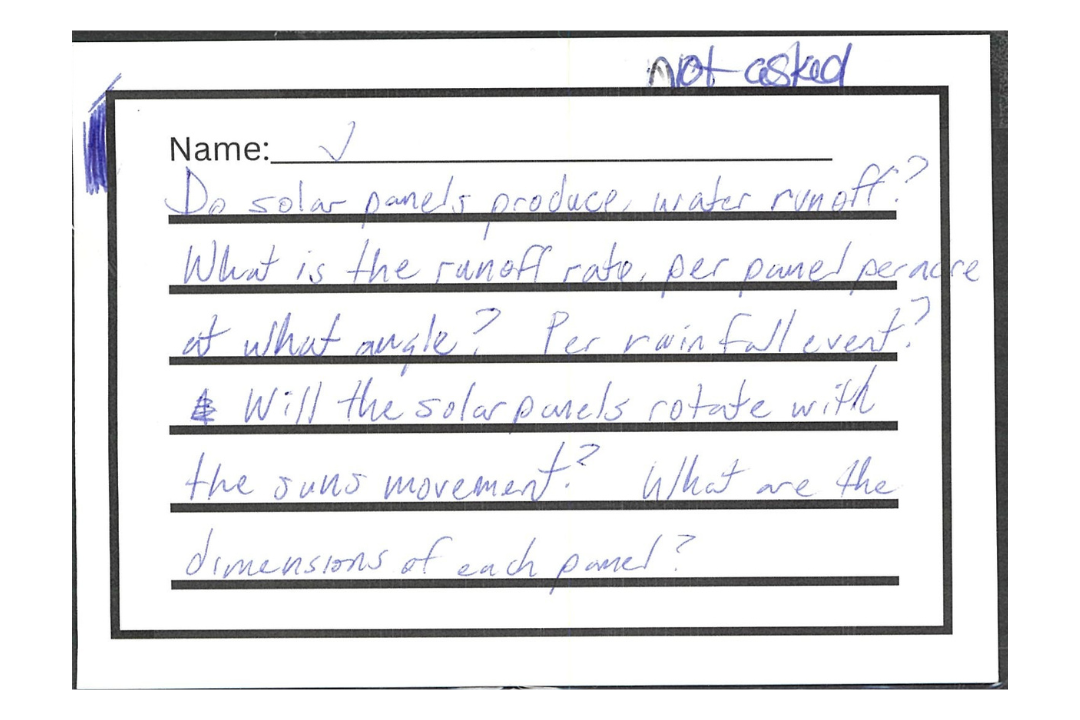 not asked
Name: √
Do solar panels produce water runoff?
What is the runoff rate, per panel per acre
at what angle? Per rainfall event?
Will the solar panels rotate with
the suns movement? What are the
dimensions of each panel?